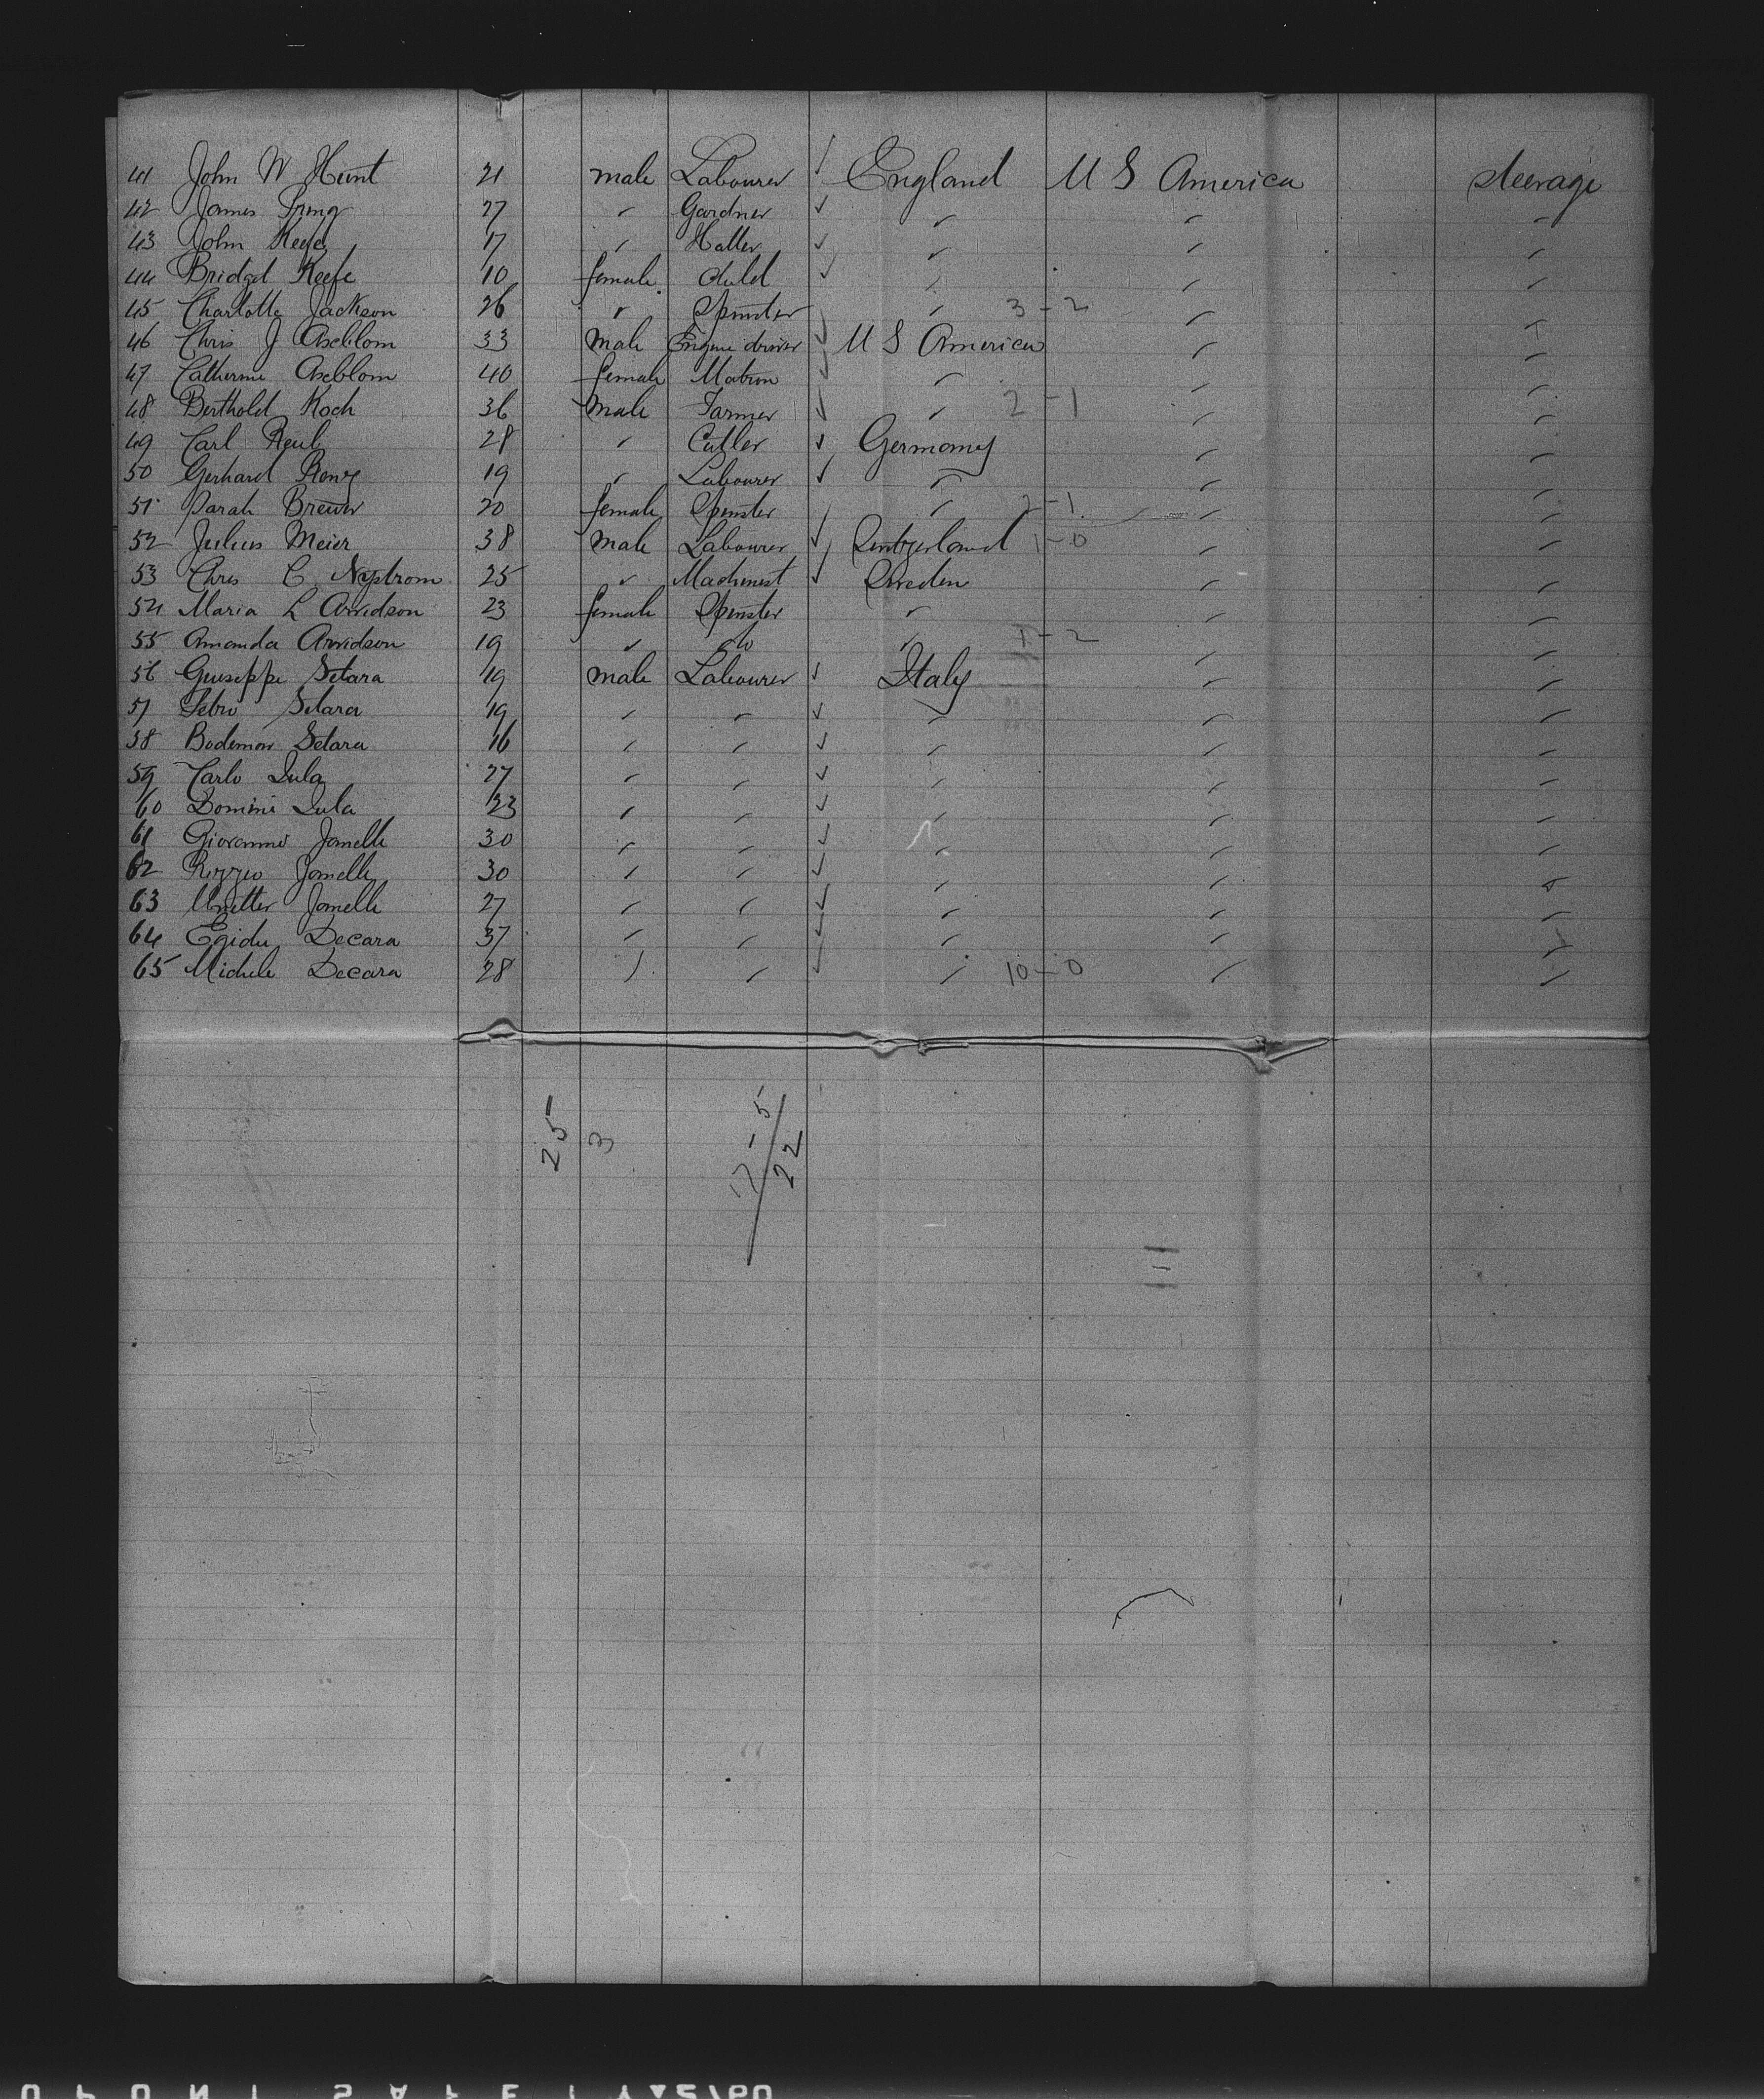 41 John W Hunt 21 male Labourer ✓ England U S America steerage
42 James 27 " Gardner ✓ " " "
43 John 17 " Hatter ✓ " " "
44 Bridget Keefe 10 female Child ✓ " " "
45 Charlotte Jackson 26 " Spinster " 3-2 " "
46 Chris J Axeblom 33 male Engine driver ✓ U S America " "
47 Catherine Axeblom 40 female Matron ✓ " " "
48 Berthold Koch 36 male Farmer ✓ " 2-1 " "
49 Carl 28 " Cutler ✓ Germany " "
50 Gerhard 19 " Labourer ✓ " " "
51 Sarah Brewer 20 female Spinster " 2-1 " "
52 Julius Meier 38 male Labourer ✓ Switzerland 1-0 " "
53 Chres C Nystrom 25 " Machinest ✓ Sweden " "
54 Maria L Arvidson 23 female Spinster " " "
55 Amanda Arvidson 19 " do " 1-2 " "
56 Guiseppe Setara 19 male Labourer ✓ Italy " "
57 Setara 19 " " ✓ " " "
58 Setara 16 " " ✓ " " "
59 Carlo Lula 27 " " ✓ " " "
60 Domini Lula 23 " " ✓ " " "
61 Giovanni Jamelle 30 " " ✓ " " "
62 Jamelle 30 " " ✓ " " "
63 Jamelle 27 " " ✓ " " "
64 Egidu Decara 37 " " ✓ " " "
65 Michele Decara 28 " " ✓ " 10-0 " "
25
3
17-5
22